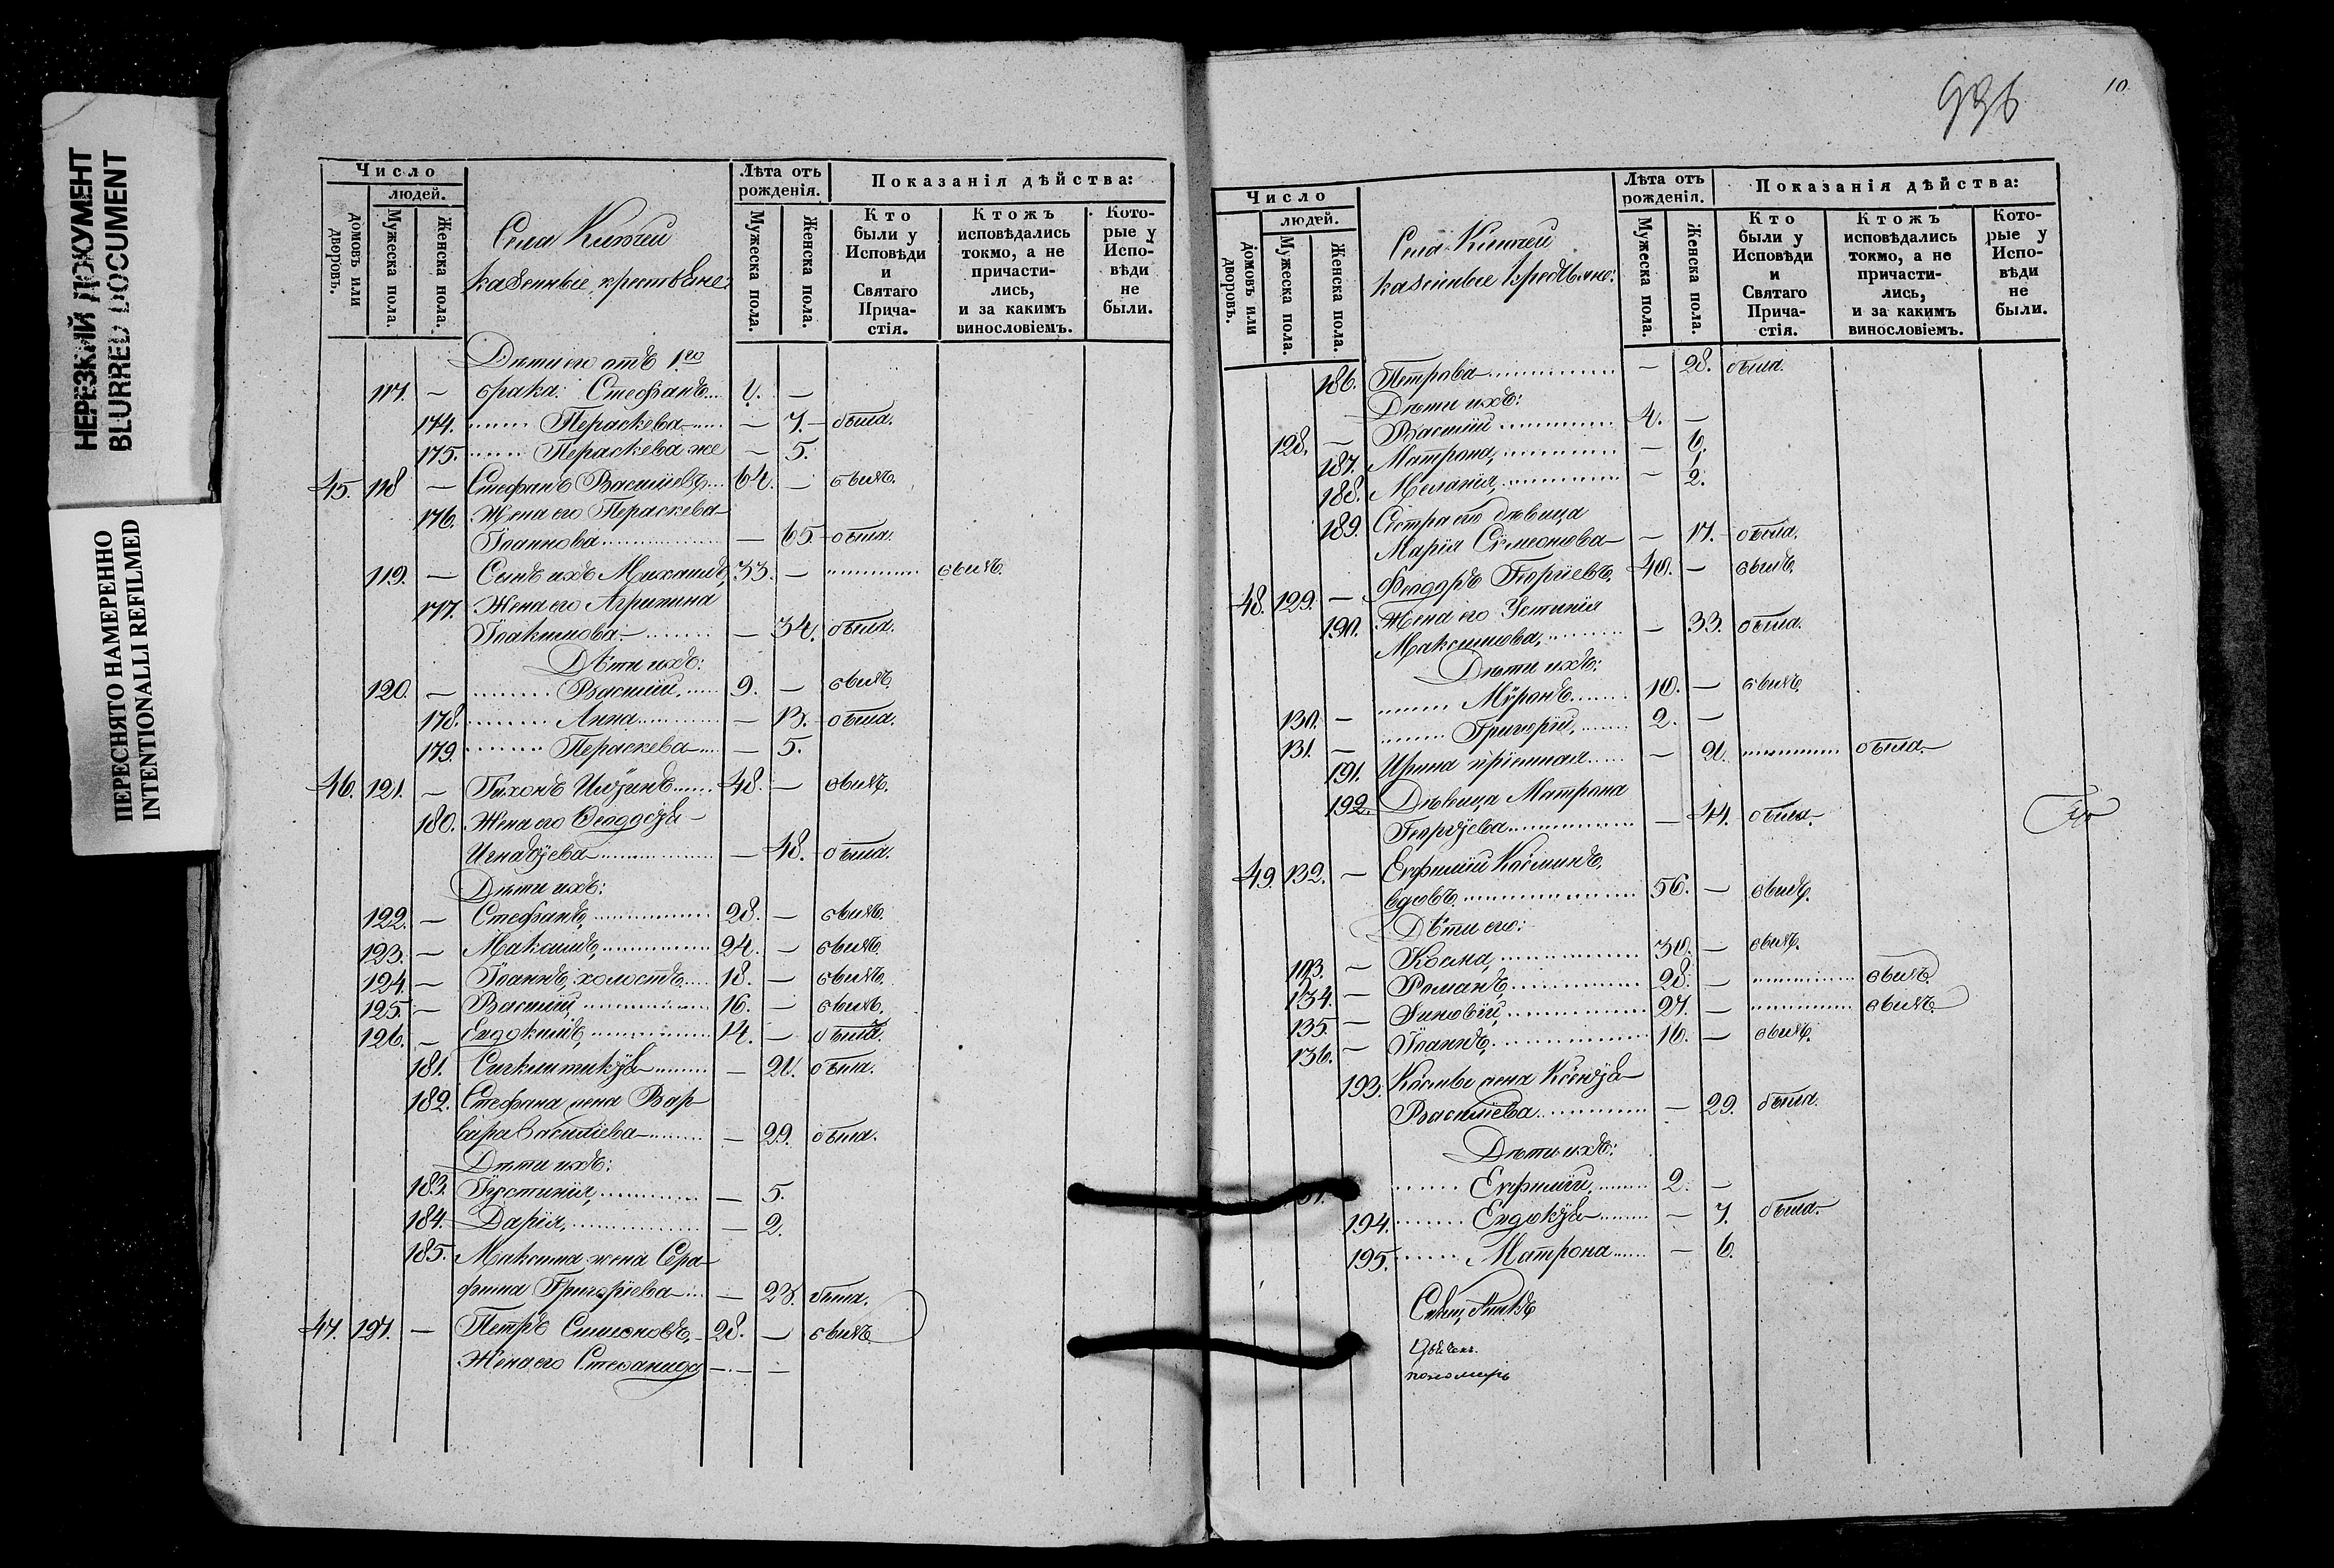 НЕРЕЗКИЙ ДОКУМЕНТ
BLURRED DOCUMENT
ПЕРЕСНЯТО НАМЕРЕННО
INTENTIONALLI REFILMED
Число
людей.
домовъ или дворовъ.
Мужеска пола.
Женска пола.
Села
казенные крестьяне:
Лѣта отъ рожденія.
Мужеска пола.
Женска пола.
Показанія дѣйства:
Кто были у Исповѣди и Святаго Прича-стія.
Ктожъ исповѣдались токмо, а не причасти-лись, и за какимъ винословіемъ.
Кото-рые у Испо-вѣди не были.
Дѣти его отъ 1го
117. — брака: Стефанъ — —
174. Параскева — 7. — была.
175. Параскева же — 5.
45. 118 — Стефанъ Василіевъ 64. — былъ.
176. Жена его Параскева
Іоаннова — 65 — была.
119. — Сынъ ихъ Михаилъ, 33. — былъ.
177. Жена его Агрипина
Іоакимова — 34. была.
Дѣти ихъ:
120. — Василій, 9. — былъ.
178. Анна — 13. — была.
179. Параскева — 5.
46. 121. — Тихонъ 48. — былъ.
180. Жена его Ѳеодосія
Игнатіева — 48. — была.
Дѣти ихъ:
122. — Стефанъ, 28. — былъ.
123. — Максимъ, 24. — былъ.
124. — Іоаннъ, холостъ 18. — былъ.
125. — Василій, 16. — былъ.
126. — Евдокимъ, 14. — былъ.
181. Сигклитикія — была.
182. Стефана жена Вар-
вара Василіева — 29. была.
Дѣти ихъ:
183. Іустинія, — 5.
184. Дарія, — 2.
185. Максима жена Сера-
фима Григоріева — 23. была.
47. 127. — Петръ Симеоновъ, 28. — былъ.
Жена его Стефанида — —
936
10.
Число
людей.
домовъ или дворовъ.
Мужеска пола.
Женска пола.
Села
казенные крестьяне:
Лѣта отъ рожденія.
Мужеска пола.
Женска пола.
Показанія дѣйства:
Кто были у Исповѣди и Святаго Прича-стія.
Ктожъ исповѣдались токмо, а не причасти-лись, и за какимъ винословіемъ.
Кото-рые у Испо-вѣди не были.
186. Петрова — 28. была.
Дѣти ихъ:
128. — Василій 4. —
187. Матрона, — 6.
188. Меланія, — 2.
189. Сестра его дѣвица
Марія Симеонова — 17. — была.
48. 129. — Ѳеодоръ Георгіевъ, 40. — былъ.
190. Жена его Устинія
Максимова, — 33. была.
Дѣти ихъ:
130. — Мѵронъ 10. — былъ.
131. — Григорій, 2. —
191. Ирина пріемная — была.
192. Дѣвица Матрона
Георгіева — 44. была.
49. 132. — Евфимій Косминъ,
вдовъ 56. — былъ.
Дѣти его:
133. — Косма, 30. — былъ.
134. — Романъ, 28. — былъ.
135. — Зиновій, 27. — былъ.
136. — Іоаннъ, 16. — былъ.
193. Космы жена Ксенія
Василіева — 29. была.
Дѣти ихъ:
Евфимій, 2. —
194. Евдокія — 7. была.
195. Матрона — 6.
пономарь